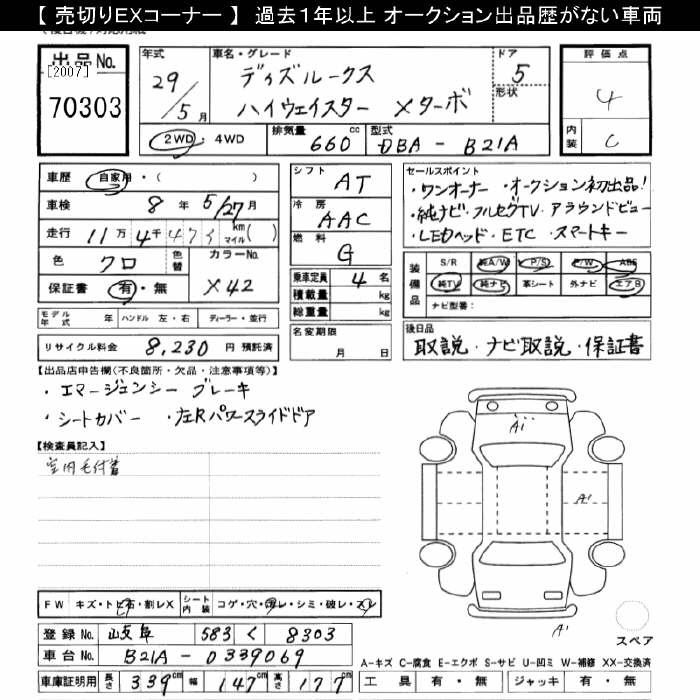 【 売切りEXコーナー 】 過去1年以上 オークション出品歴がない車両
出品No.
[2007]
70303
年式
29/5月
車名・グレード
ディズルークス
ハイウェイスター Xターボ
ドア
5
形状
評価点
4
内装
C
2WD ・ 4WD
排気量
660 cc
型式
DBA - B21A
車歴 自家用・( )
車検 8年 5/27月
走行 11万4千473 km/マイル ( )
色 クロ
色替
カラーNo.
X42
保証書 有・無
モデル年式 年 ハンドル 左・右 ディーラー・並行
リサイクル料金 8,230 円 預託済
シフト
AT
冷房
AAC
燃料
G
乗車定員 4 名
積載量 kg
総重量 kg
名変期限
月 日
セールスポイント
・ワンオーナー ・オークション初出品!
・純ナビ・フルセグTV・アラウンドビュー
・LEDヘッド・ETC・スマートキー
装備品
S/R 純A/W P/S P/W ABS
純TV 純ナビ 革シート 外ナビ エアB
ナビ型番:
後日品
取説・ナビ取説・保証書
【出品店申告欄(不良箇所・欠品・注意事項等)】
・エマージェンシーブレーキ
・シートカバー ・左Rパワースライドドア
【検査員記入】
室内毛付着
A1
A1
A1
スペア
FW キズ・トビ石・割レX
シート内装 コゲ・穴・汚レ・シミ・破レ・スレ
登録No. 岐阜 583 く 8303
車台No. B21A - 0339069
車庫証明用 長さ 339cm 幅 147cm 高さ 177cm
A-キズ C-腐食 E-エクボ S-サビ U-凹ミ W-補修 XX-交換済
工具 有・無 ジャッキ 有・無